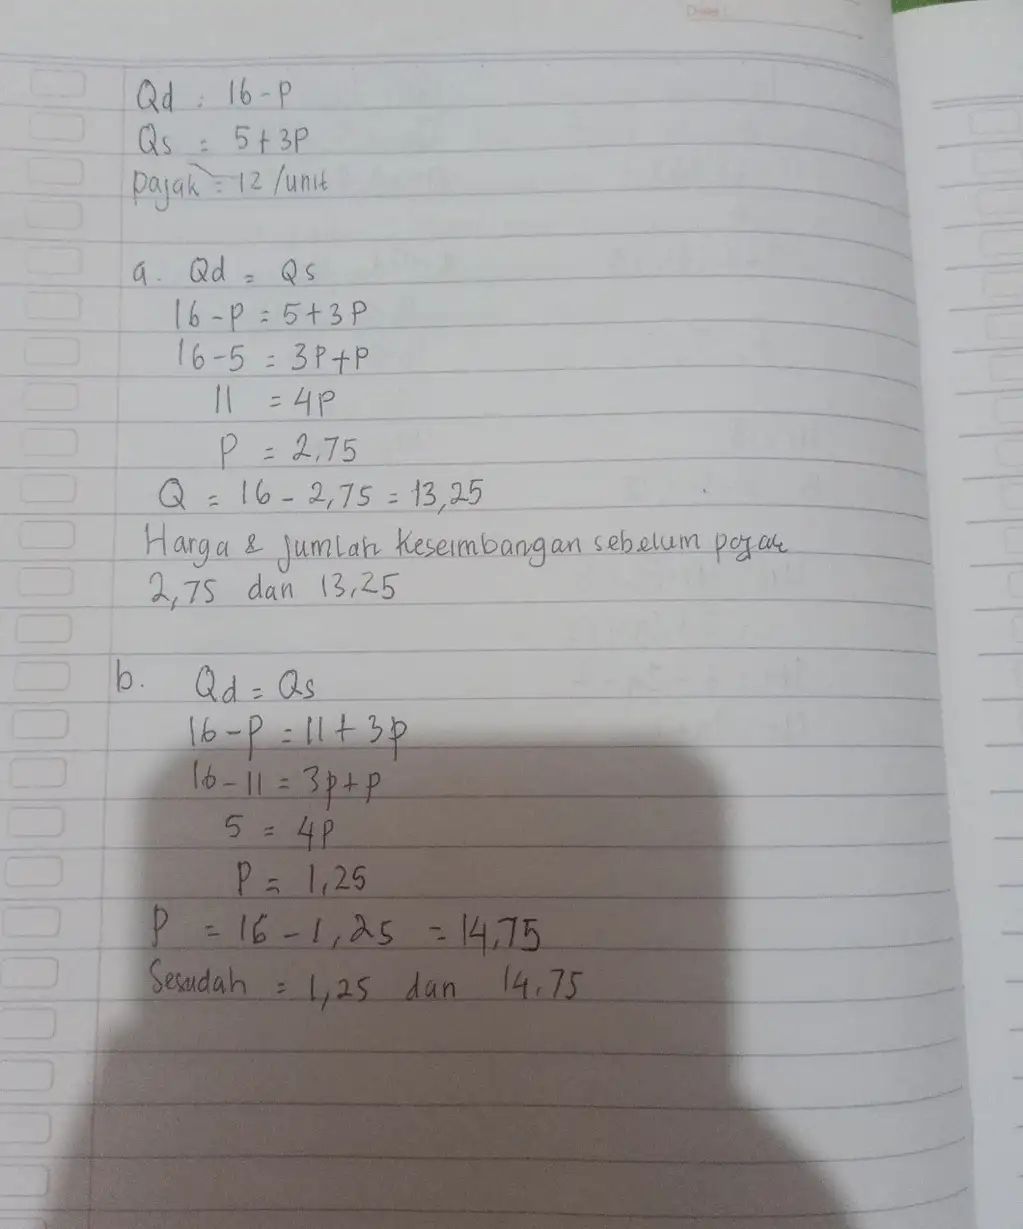 Qd : 16-P
Qs = 5+3P
pajak = 12 /unit
a. Qd = Qs
16-P = 5+3P
16-5 = 3P+P
11 = 4P
P = 2,75
Q = 16 - 2,75 = 13,25
Harga & jumlah keseimbangan sebelum pajak
2,75 dan 13,25
b. Qd = Qs
16-P = 11+3P
16-11 = 3p+p
5 = 4P
P = 1,25
P = 16 - 1,25 = 14,75
Sesudah = 1,25 dan 14.75